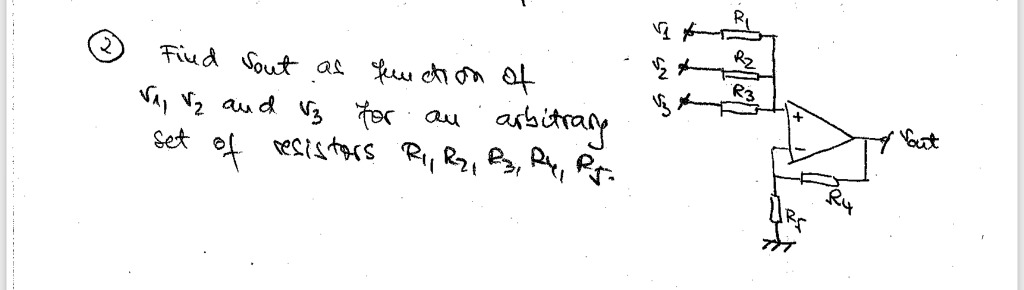 ② Find vout as function of
v1, v2 and v3 for an arbitrary
set of resistors R1, R2, R3, R4, R5.
v1 R1
v2 R2
v3 R3
+
vout
-
R4
R5